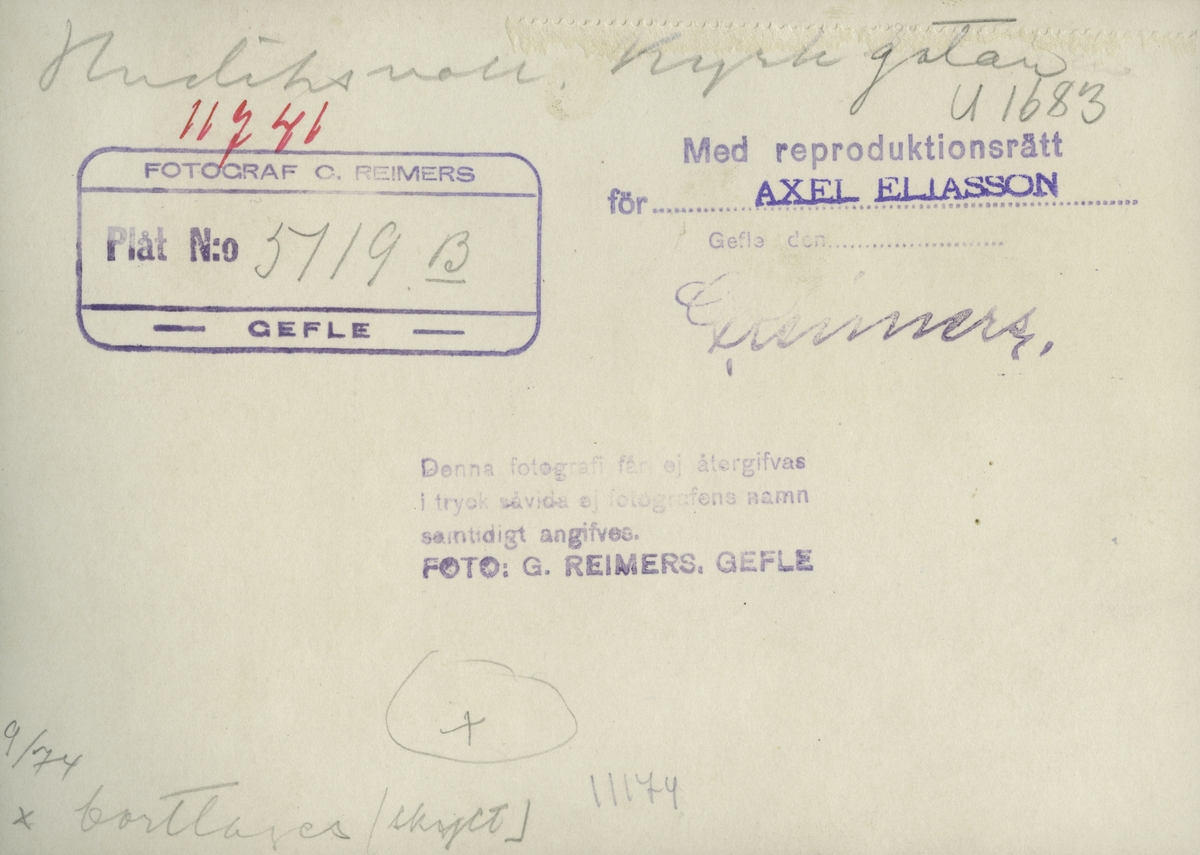 Hudiksvall. Kyrkgatan
U 1683
11741
FOTOGRAF C. REIMERS
Plåt N:o 5719 B
GEFLE
Med reproduktionsrätt
för AXEL ELIASSON
Gefle den
Reimers.
Denna fotografi får ej återgifvas
i tryck såvida ej fotografens namn
samtidigt angifves.
FOTO: G. REIMERS. GEFLE
x
9/74
x borttages (skylt)
11174